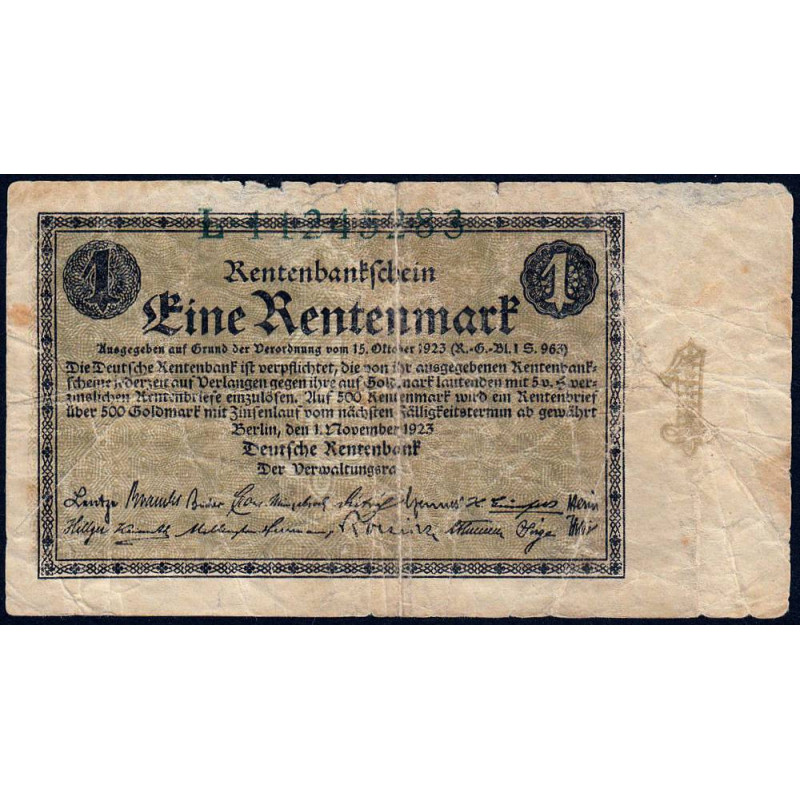 L·11245283
1 1
Rentenbankschein
Eine Rentenmark
Ausgegeben auf Grund der Verordnung vom 15. Oktober 1923 (R.-G.-Bl. I S. 963)
Die Deutsche Rentenbank ist verpflichtet, die von ihr ausgegebenen Rentenbank-
scheine jederzeit auf Verlangen gegen ihre auf Goldmark lautenden mit 5 v. H. ver-
zinslichen Rentenbriefe einzulösen. Auf 500 Rentenmark wird ein Rentenbrief
über 500 Goldmark mit Zinsenlauf vom nächsten Fälligkeitstermin ab gewährt
Berlin, den 1. November 1923
Deutsche Rentenbank
Der Verwaltungsra
Lentze Brandes Bieder
Hillger